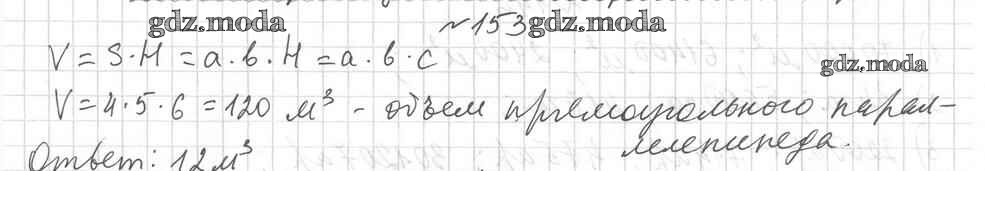 gdz.moda №153 gdz.moda
V = S·H = a·b·H = a·b·c
gdz.moda
V = 4·5·6 = 120 м³ - объем прямоугольного парал-
лелепипеда.
Ответ: 12м³
gdz.moda